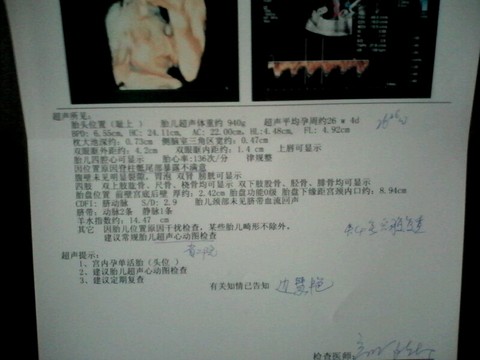 超声所见:
胎头位置(耻上) 胎儿超声体重约 940g 超声平均孕周约26 w 4d
BPD: 6.55cm, HC: 24.11cm, AC: 22.00cm, HL:4.48cm, FL: 4.92cm
枕大池深约: 0.73cm 侧脑室三角区宽约: 0.47cm
双眼眼外距约: 4.2cm 双眼眼内距约: 1.4 cm 上唇可显示
胎儿四腔心可显示 胎心率:136次/分 律规整
因位置原因脊柱骶尾部暴露不满意
腹壁未见明显裂隙, 胃泡 双肾 膀胱可显示
四肢 双上肢肱骨、尺骨、桡骨均可显示 双下肢股骨、胫骨、腓骨均可显示
胎盘位置 前壁宫底后壁 厚约: 2.42cm 胎盘功能0级 胎盘下缘距宫颈内口约: 8.94cm
CDFI: 脐动脉 S/D: 2.9 胎儿颈部未见脐带血流回声
脐带: 动脉2条 静脉1条
羊水指数约: 14.47 cm
其它 因胎儿位置原因干扰检查,某些胎儿畸形不除外,
建议常规胎儿超声心动图检查
超声提示:
1、宫内孕单活胎(头位)
2、建议胎儿超声心动图检查
3、建议定期复查
有关知情已告知
检查医师: